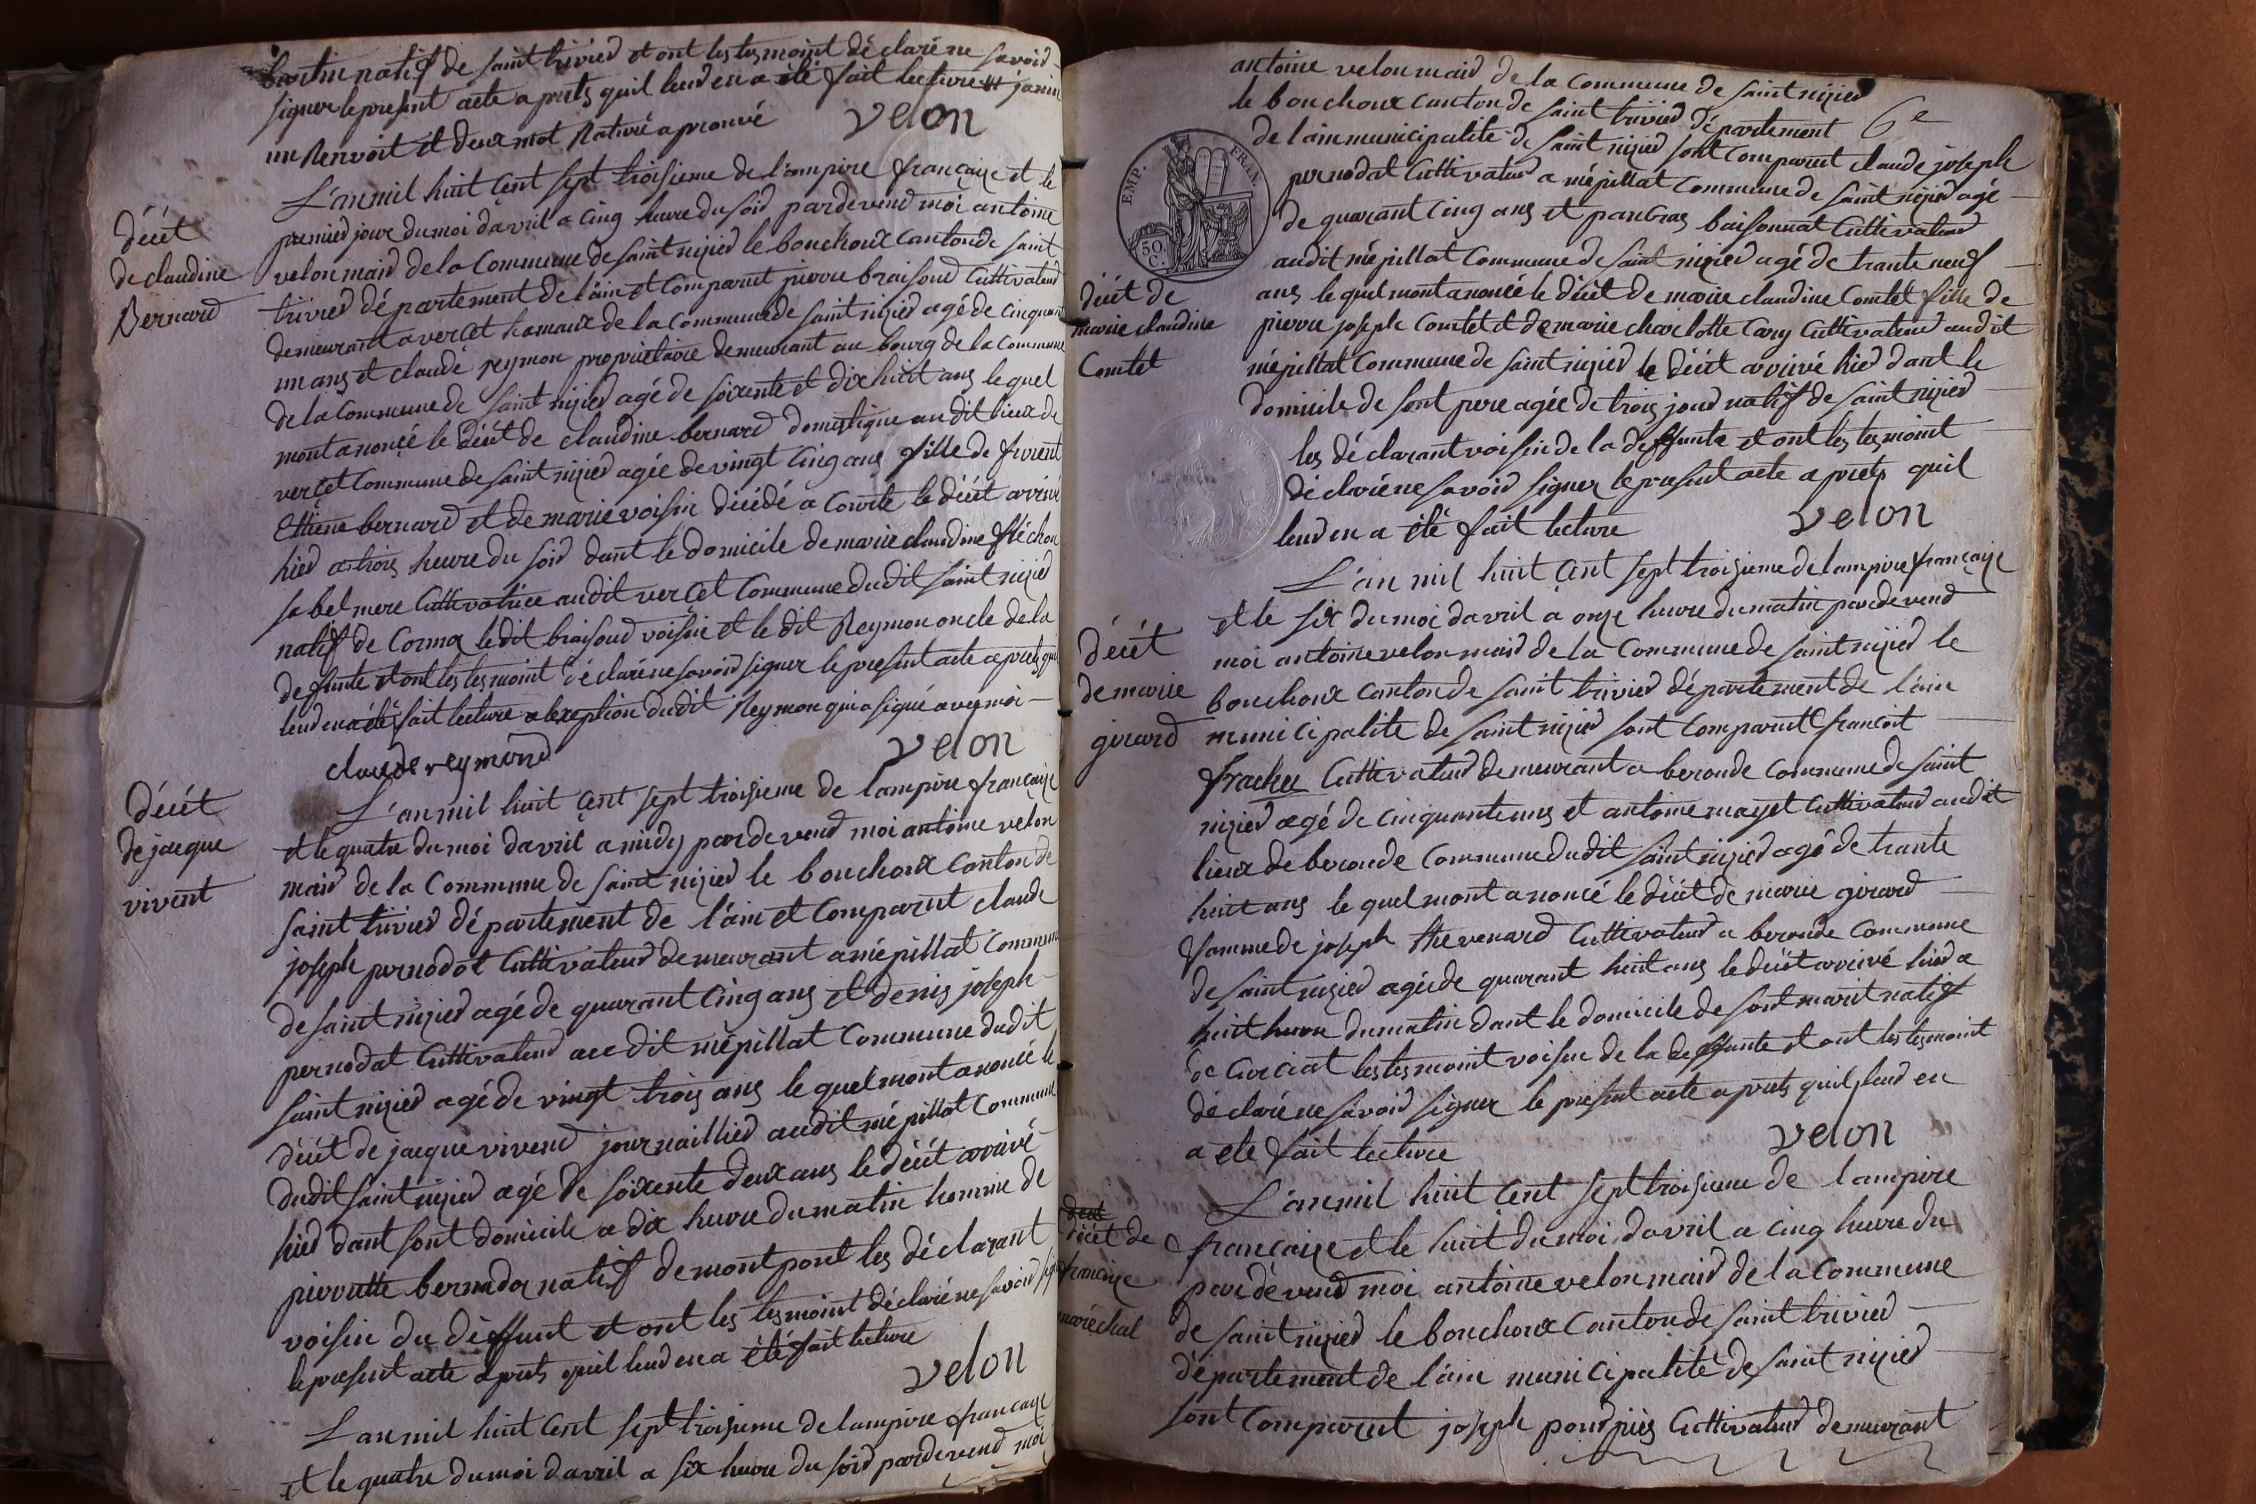 natif de saint trivier et ont les tesmoint déclaré ne savoir
signer le present acte a prets quil leur en a été fait lecture
un Renvoit et deux mot Raturé aprouvé velon
L'an mil huit cent sept troisieme de l'ampire française et le
décét
de claudine
Bernard
premier jour du moi davril a cinq heure du soir pardevend moi antoine
velon maird de la Commune de saint nizier le bouchoux canton de saint
trivier département de lain et Comparut pierre braisoud Cultivateur
demeurant a vercet hamaux de la Commune de saint nizier agé de cinquant
un ans et claude reymon propriétaire demeurant au bourg de la Commune
de la Commune de saint nizier agé de soixente et dix huit ans le quel
mont anoncé le décét de claudine bernard domestique au dit lieux de
vercet Commune de saint nizier agée de vingt cinq ans fille de
Ettiene bernard et de marie voisin décédé a Courte le décét arrivé
hier a trois heure du soir dant le domicile de marie claudine fléchon
sa bel mere Cultivatrice au dit vercet Commune dudit saint nizier
natif de Cormoz ledit braisoud voisin et le dit Reymon oncle de la
defunte et ont les tesmoint déclaré ne savoir signer le present acte a prets quil
leur en a été fait lecture a lexeption dudit Reymon qui a signé avec moi
claude reymond velon
décét
de jacque
vivent
L'an mil huit cent sept troisieme de lampire française
et le quatre du moi davril a midy pardevend moi antoine velon
maird de la Commune de saint nizier le bouchoux canton de
saint trivier département de l'ain et Comparut claude
joseph pernodat Cultivateur demeurant a mépillat Commune
de saint nizier agé de quarant cinq ans et denis joseph
pernodat Cultivateur au dit mépillat Commune dudit
saint nizier agé de vingt trois ans le quel mont anoncé le
décét de jacque vivend journaillier audit mépillat Commune
dudit saint nizier agé de soixente deux ans le décét arrivé
hier dant sont domicile a dix heure du matin homme de
pierrette bernadoz natif de montpont les déclarant
voisin du deffunt et ont les tesmoint déclaré ne savoir signer
le present acte a prets quil leur en a été fait lecture
velon
L'an mil huit cent sept troisieme de lampire française
et le quatre du moi davril a six heure du soir pardevend moi
antoine velon maird de la Commune de saint nizier
le bouchoux canton de saint trivier département 6e
de lain municipalité de saint nizier sont Comparut claude joseph
EMP. FRAN.
50 C.
pernodat Cultivateur a mépillat Commune de saint nizier agé
de quarant cinq ans et pancras baisonnat Cultivateur
audit mépillat Commune de saint nizier agé de trante neuf
décét de
marie claudine
Comtet
ans le quel mont anoncé le décét de marie claudine Comtet fille de
pierre joseph Comtet et de marie charlotte Cary Cultivateur audit
mépillat Commune de saint nizier le décét arrivé hier dant le
domicile de sont pere agée de trois jour natif de saint nizier
les déclarant voisin de la deffunte et ont les tesmoint
déclaré ne savoir signer le present acte a prets quil
leur en a été fait lecture velon
L'an mil huit cent sept troisieme de lampire française
et le six du moi davril a onze heure du matin pardevend
décét
de marie
girard
moi antoine velon maird de la Commune de saint nizier le
bouchoux canton de saint trivier département de l'ain
municipalite de saint nizier sont Comparut francoit
frachec Cultivateur demeurant a beronde Commune de saint
nizier agé de cinquante ans et antoine mayet Cultivateur audit
lieux de beronde Commune dudit saint nizier agé de trante
huit ans le quel mont anoncé le décét de marie girard
famme de joseph thevenard Cultivateur a beronde Commune
de saint nizier agée de quarant huit ans le décét arrivé hier a
huit heure du matin dant le domicile de sont marit natif
de Curciat les tesmoint voisin de la deffunte et ont les tesmoint
déclaré ne savoir signer le present acte a prets quil leur en
a été fait lecture velon
L'an mil huit cent sept troisieme de lampire
decet
décét de
françoise
maréchal
française et le huit du moi davril a cinq heure du
pardevend moi antoine velon maird de la Commune
de saint nizier le bouchoux canton de saint trivier
département de l'ain municipalité de saint nizier
sont Comparut joseph Cultivateur demeurant